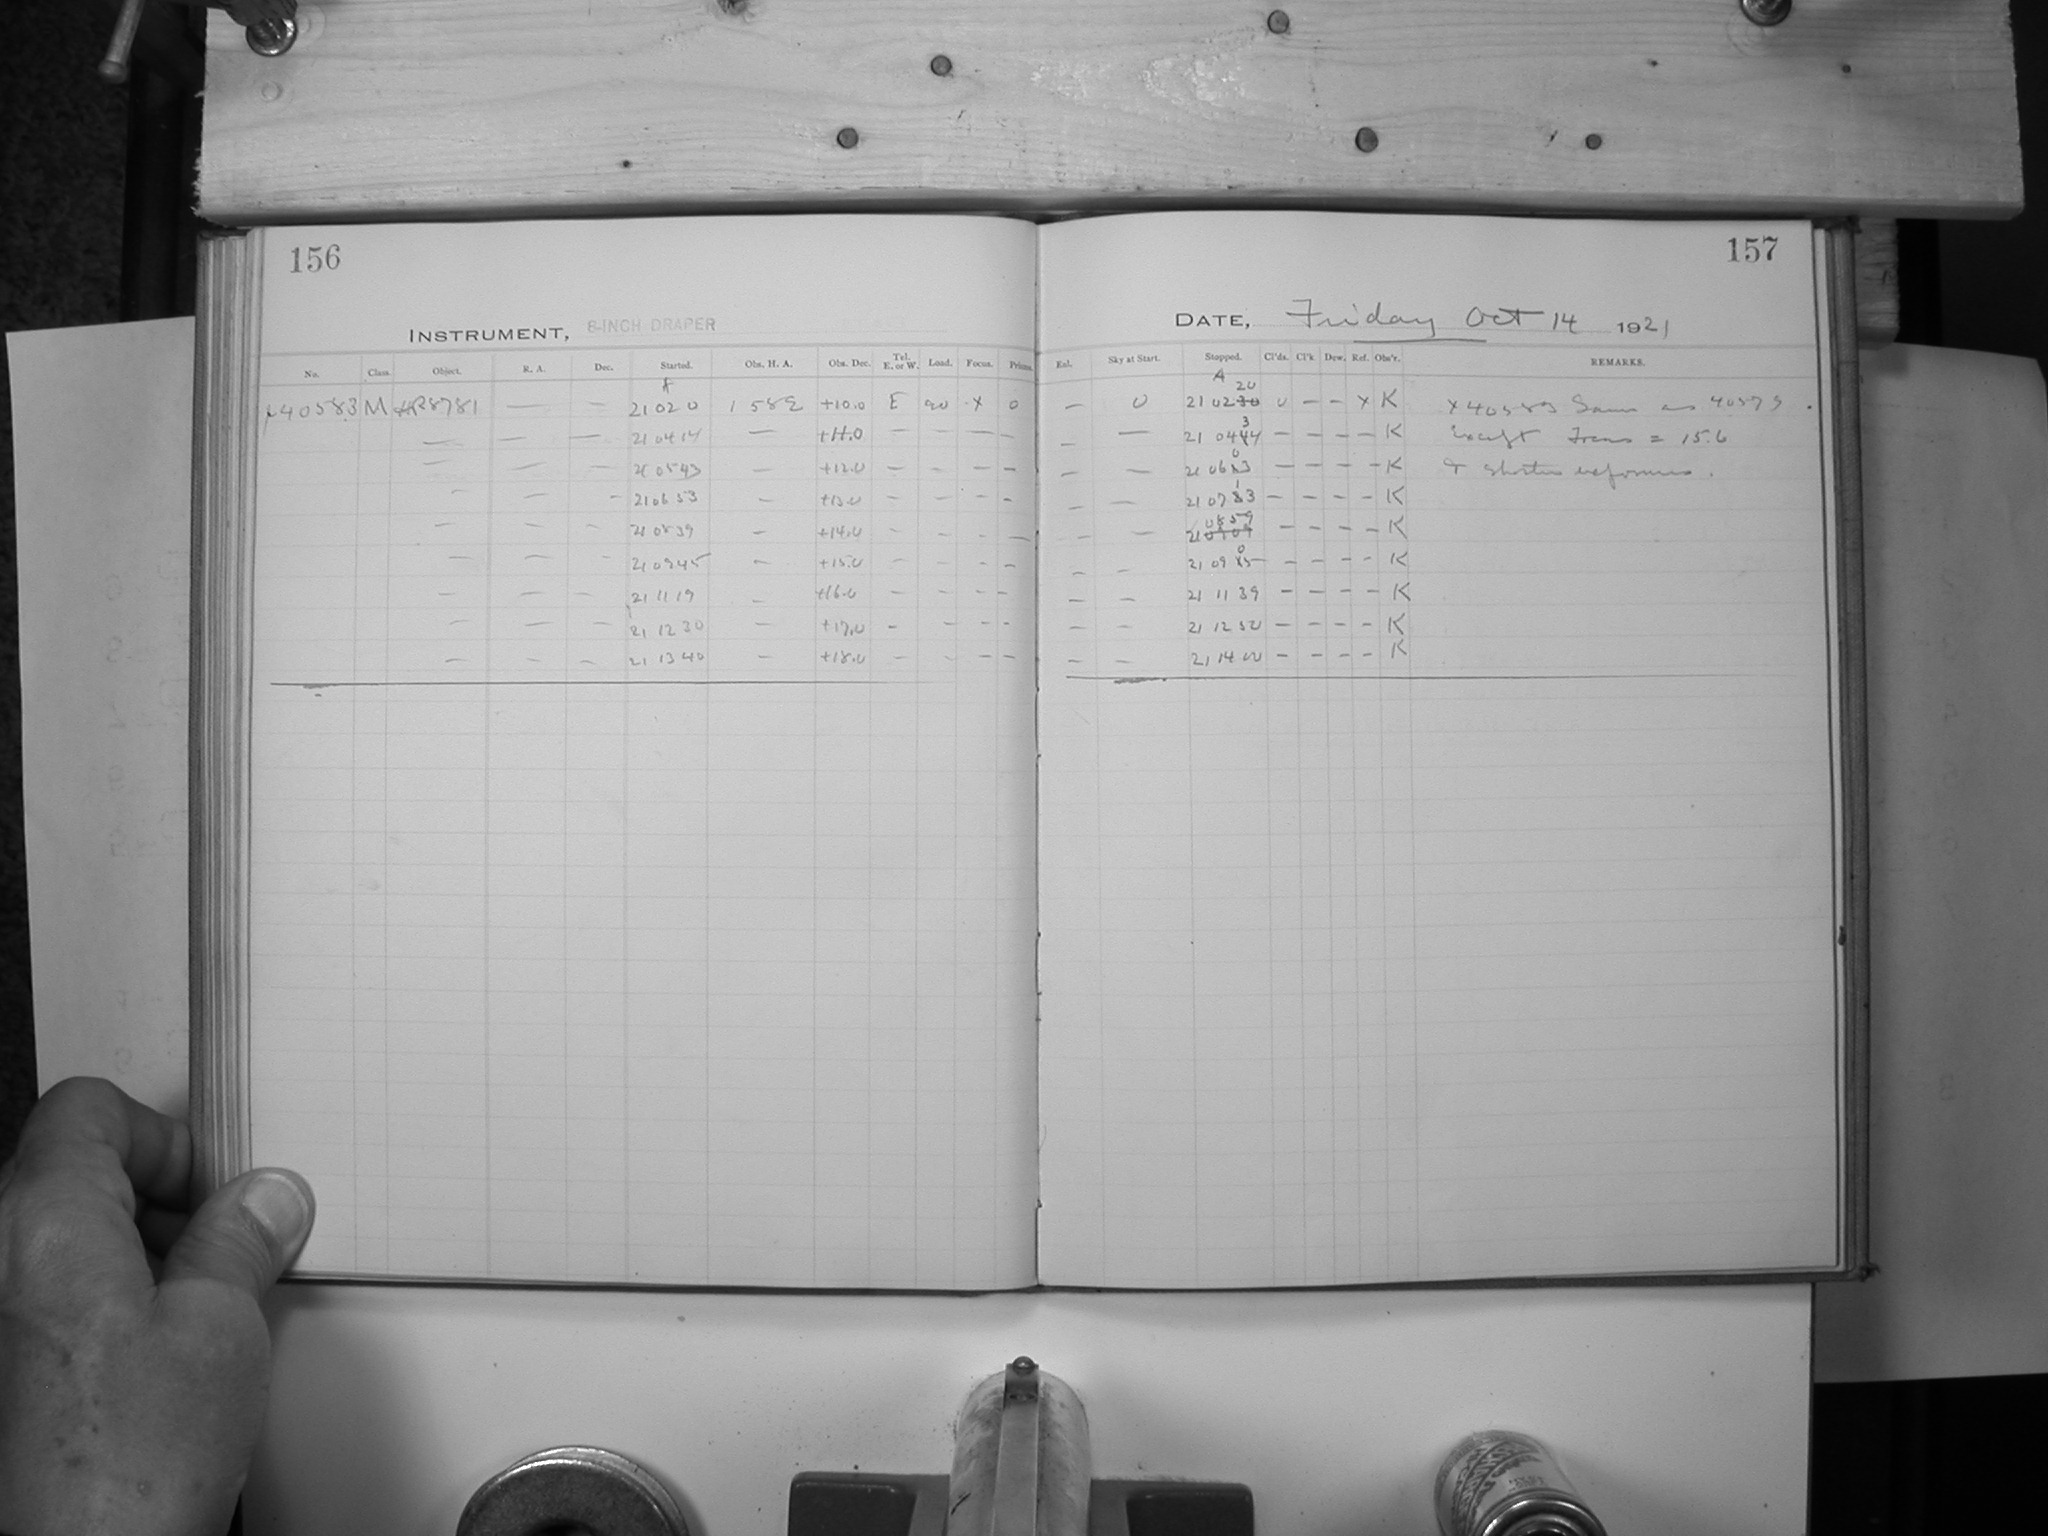 156
INSTRUMENT, 8-INCH DRAPER
No. Class. Object. R. A. Dec. Started. Obs. H. A. Obs. Dec. Tel. E. or W. Load. Focus. Prisms.
40583 M HR8781 — — 21 02 0 1 58 E +10.0 E 90 x 0
— — — 21 04 14 — +11.0 — — — —
— — — 21 05 43 — +12.0 — — — —
— — — 21 06 53 — +13.0 — — — —
— — — 21 08 39 — +14.0 — — — —
— — — 21 09 45 — +15.0 — — — —
— — — 21 11 19 — +16.0 — — — —
— — — 21 12 30 — +17.0 — — — —
— — — 21 13 40 — +18.0 — — — —
157
DATE, Friday Oct 14 1921
Enl. Sky at Start. Stopped. Cl'ds. Cl'k Dew. Ref. Obs'r. REMARKS.
— 0 21 02 20 0 — — x K x 40583 Same as 40579.
— — 21 04 34 — — — — K Except Focus = 15.6
— — 21 06 03 — — — — K & shorter exposures.
— — 21 07 13 — — — — K
— — 21 08 59 — — — — K
— — 21 09 05 — — — — K
— — 21 11 39 — — — — K
— — 21 12 50 — — — — K
— — 21 14 00 — — — — K